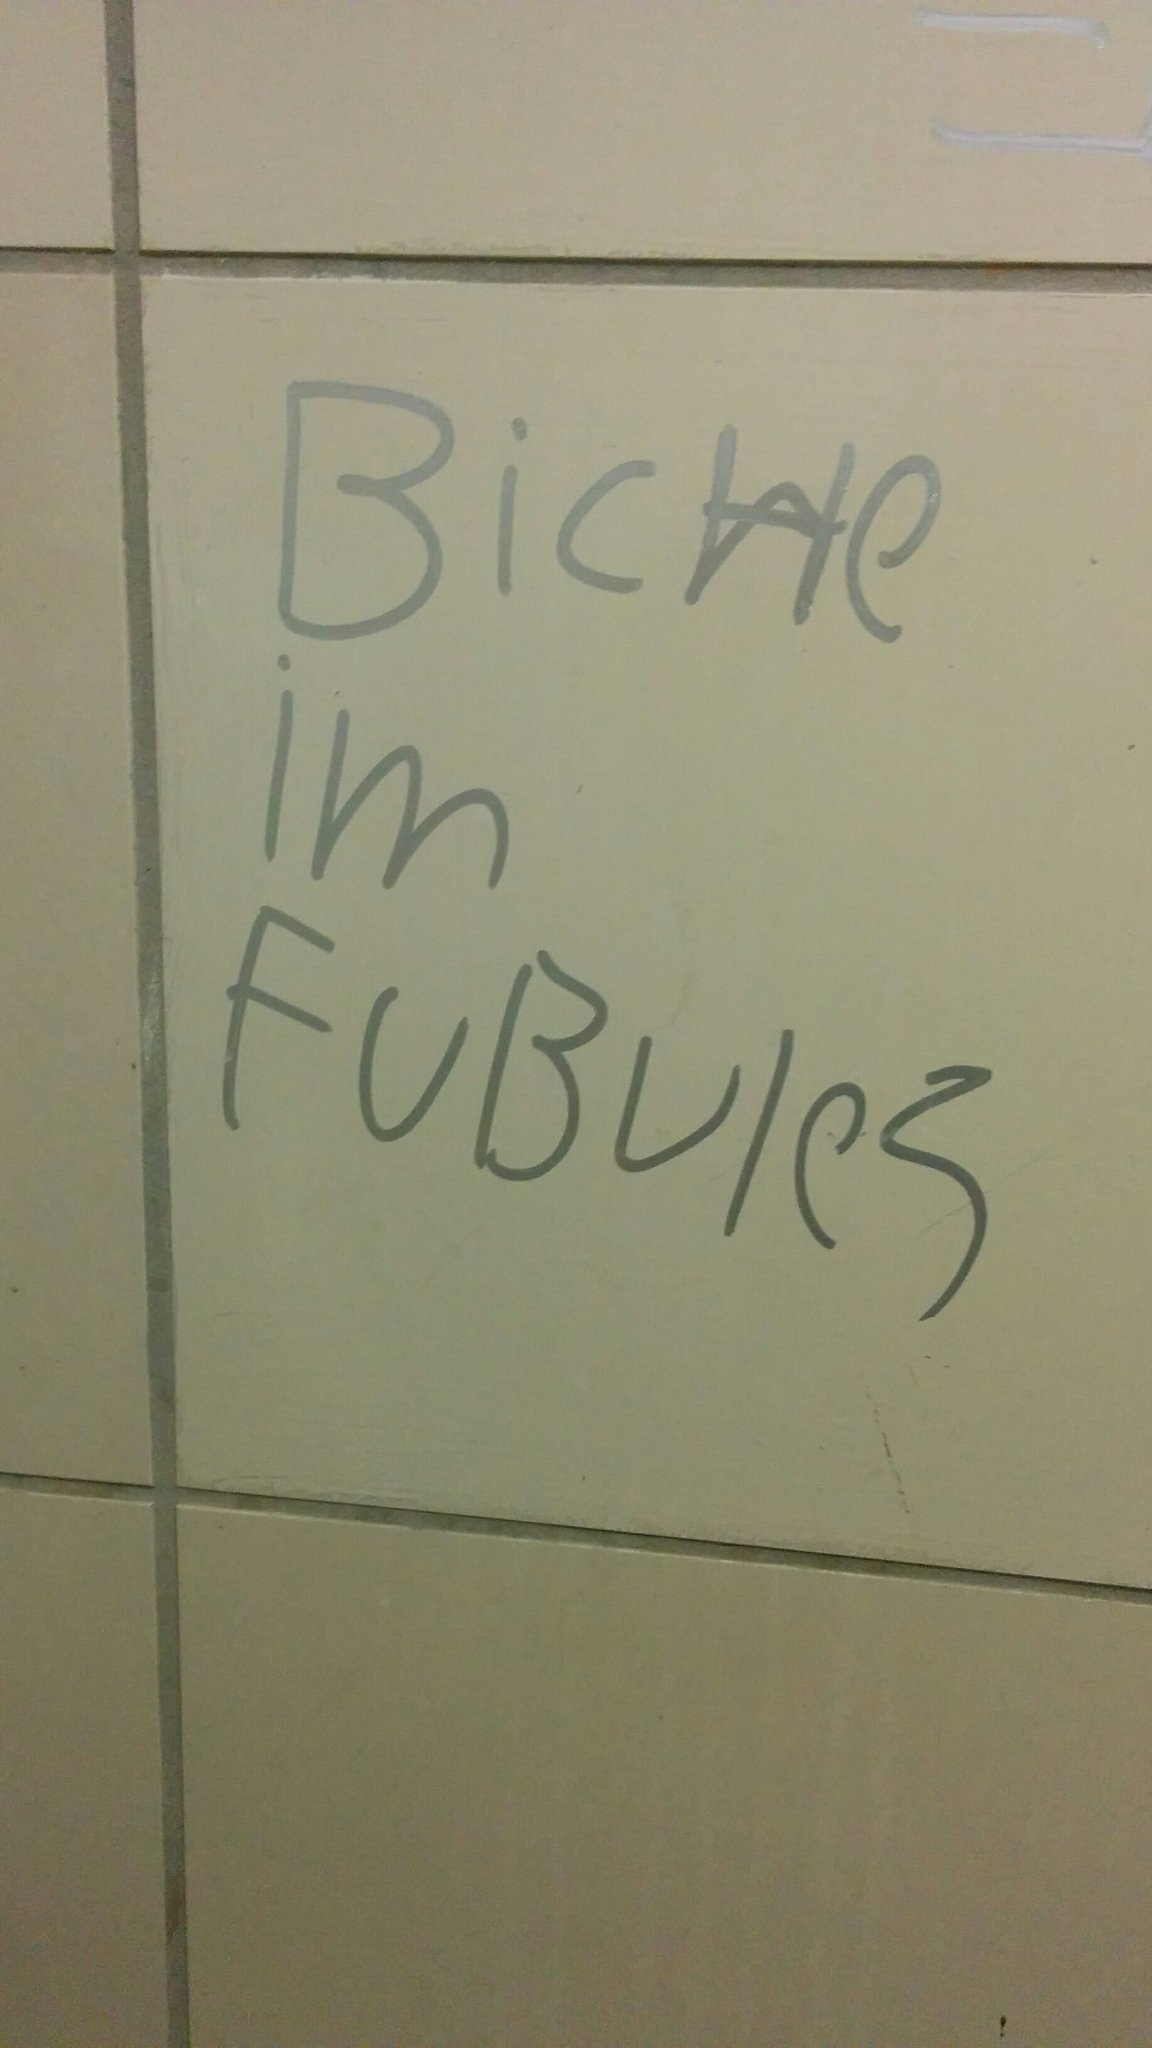 BicHe
im
FuBules